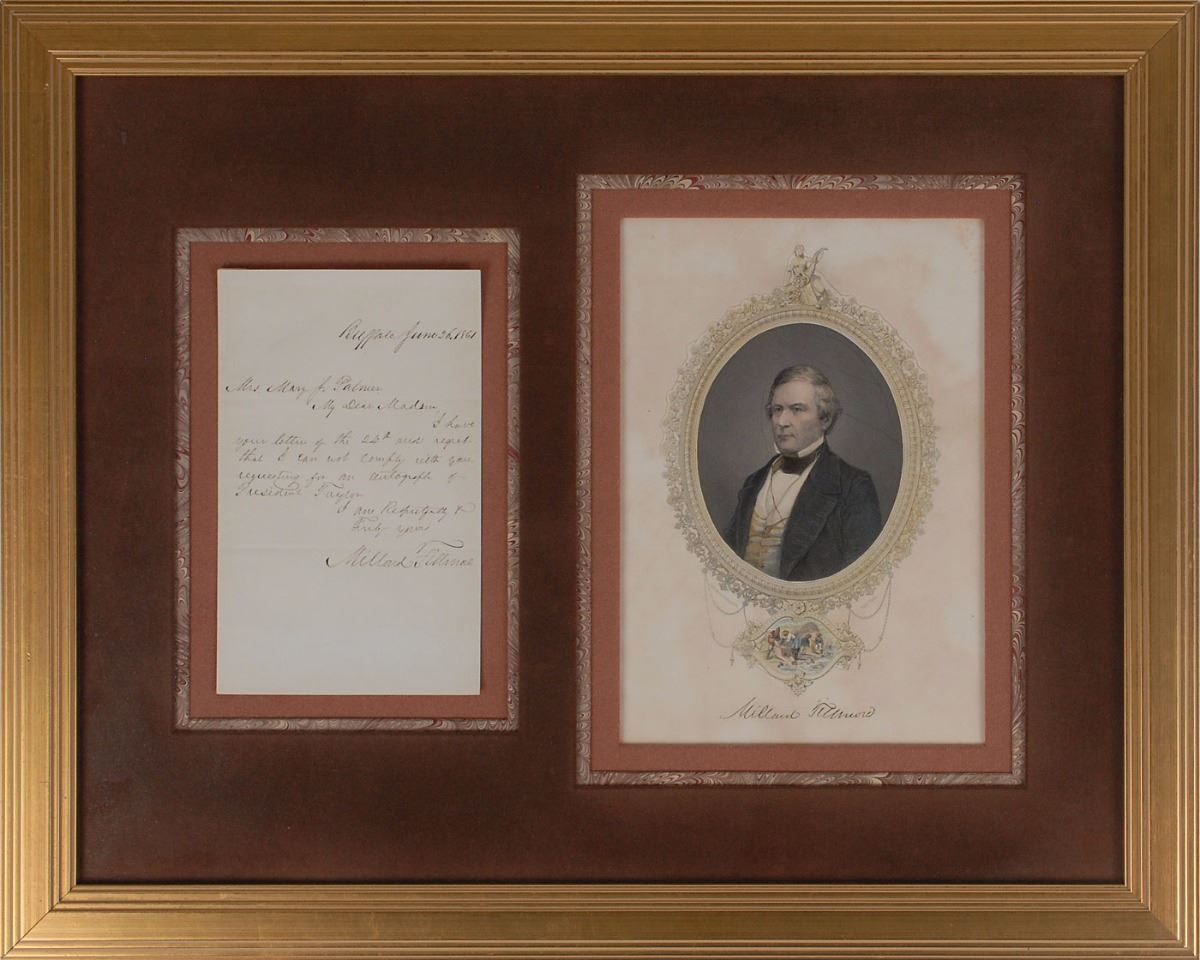 Buffalo June 26, 1861
Mrs. Mary J. Palmer
My Dear Madam
I have
your letter of the 22th and regret
that I can not comply with your
requesting for an autograph of
President Taylor
I am Respectfully &
Truly yours
Millard Fillmore
Millard Fillmore